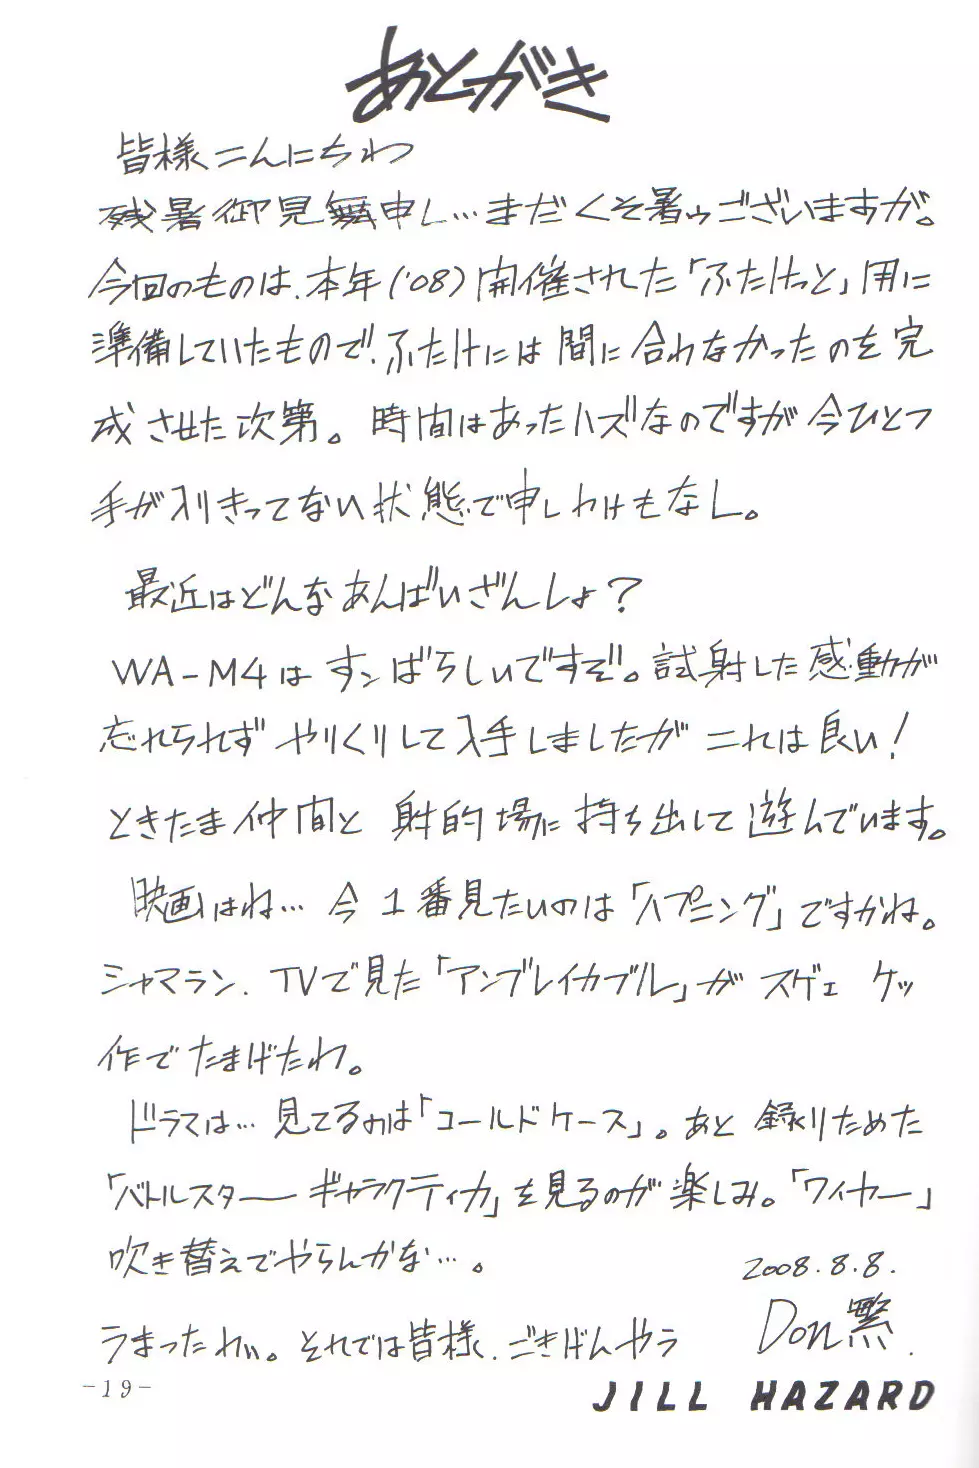 あとがき
皆様こんにちわ
残暑御見舞申し…まだくそ暑ゥございますが。
今回のものは、本年('08)開催された「ふたけっと」用に
準備していたもので、ふたけには間に合わなかったのを完
成させた次第。時間はあったハズなのですが今ひとつ
手が入りきってない状態で申しわけもなし。
最近はどんなあんばいざんしょ?
WA-M4はすンばらしいですぞ。試射した感動が
忘れられず やりくりして入手しましたがこれは良い!
ときたま仲間と 射的場に持ち出して遊んでいます。
映画はね… 今1番見たいのは「ハプニング」ですかね。
シャマラン、TVで見た「アンブレイカブル」がスゲェ ケッ
作でたまげたわ。
ドラマは…見てるのは「コールドケース」。あと録りためた
「バトルスターギャラクティカ」を見るのが楽しみ。「ワイヤー」
吹き替えでやらんかな…。
2008.8.8.
うまったわい。それでは皆様、ごきげんやう
Don繁.
-19-
JILL HAZARD